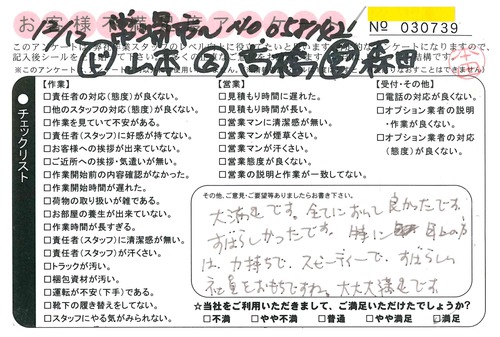 お客様不満度アンケート
12/12 常滑市 No 058
㊏山本 ㊁高橋 ㊂森田
№ 030739
このアンケートに
記入後シールを
※このアンケート
なおすことはできません)
チェックリスト
【作業】
□責任者の対応(態度)が良くない。
□他のスタッフの対応(態度)が良くない。
□作業を見ていて不安がある。
□責任者(スタッフ)に好感が持てない。
□お客様への挨拶が出来ていない。
□ご近所への挨拶・気遣いが無い。
□作業開始前の内容確認がなかった。
□作業開始時間が遅れた。
□荷物の取り扱いが雑である。
□お部屋の養生が出来ていない。
□作業時間が長すぎる。
□責任者(スタッフ)に清潔感が無い。
□責任者(スタッフ)が汗くさい。
□トラックが汚い。
□梱包資材が汚い。
□運転が不安(下手)である。
□靴下の履き替えをしてない。
□スタッフにやる気がみられない。
【営業】
□見積もり時間に遅れた。
□見積もり時間が長い。
□営業マンに清潔感が無い。
□営業マンが煙草くさい。
□営業マンが汗くさい。
□営業態度が良くない。
□営業の説明と作業が一致してない。
【受付・その他】
□電話の対応が良くない。
□オプション業者の説明
・作業が良くない。
□オプション業者の対応
(態度)が良くない。
その他、ご意見・ご要望等ありましたらお書き下さい。
大満足です。全てにおいて良かったです。
すばらしかったです。特に
は、力持ちで、スピーディーで、すばらしい
社員とおもいますね。大大大満足です
☆当社をご利用いただきまして、ご満足いただけたでしょうか?
□不満 □やや不満 □普通 □やや満足 □満足